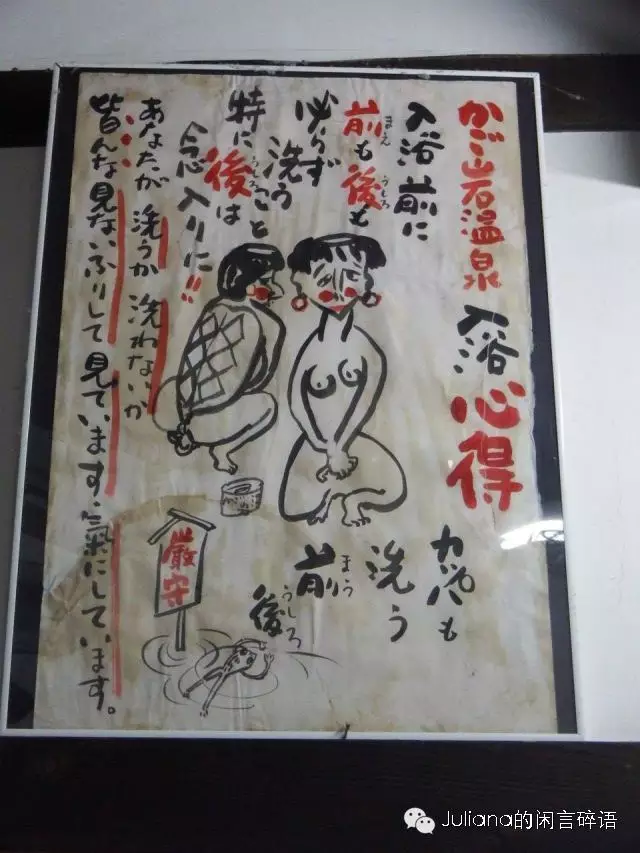 かご岩温泉 入浴心得
入浴前に
前も後も
まえ うしろ
必らず
洗うこと
特に後は
うしろ
念入りに!!
あなたが洗うか洗わないか
皆んな見ないふりして見ています。氣にしています。
カッパも
洗う
前
後
うしろ
厳守
Juliana的闲言碎语